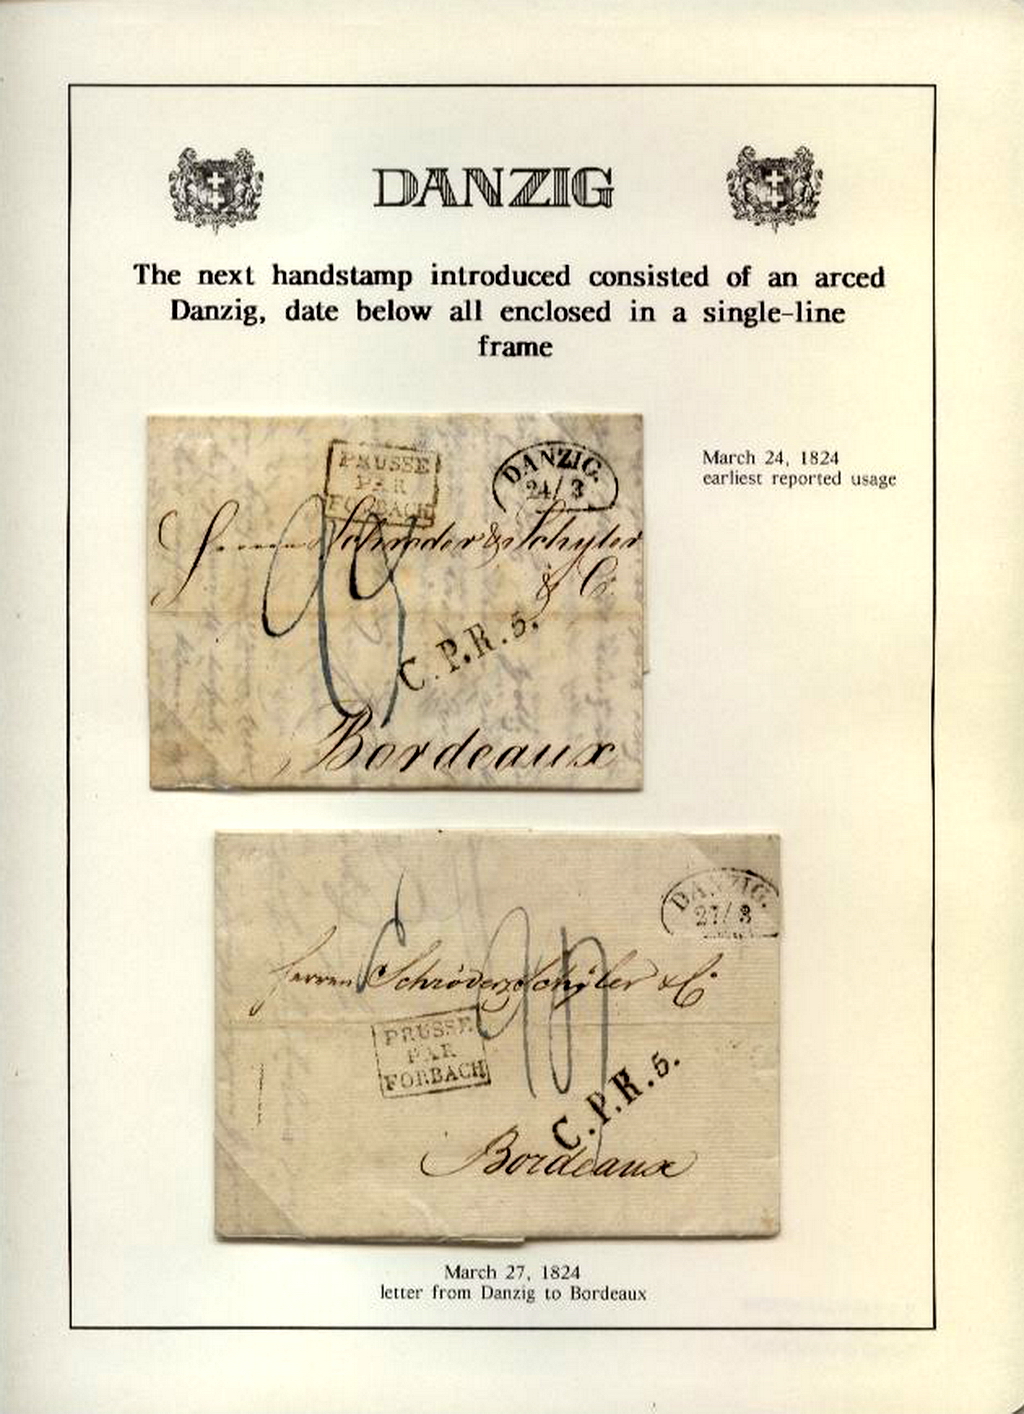 DANZIG
The next handstamp introduced consisted of an arced
Danzig, date below all enclosed in a single-line
frame
PRUSSE
PAR
FORBACH
DANZIG.
24/3
March 24, 1824
earliest reported usage
Herren Schröder & Schyler
& C.
C.P.R.5.
Bordeaux
DANZIG.
27/3
Herren Schröder & Schÿler & C.
PRUSSE
PAR
FORBACH
C.P.R.5.
Bordeaux
March 27, 1824
letter from Danzig to Bordeaux